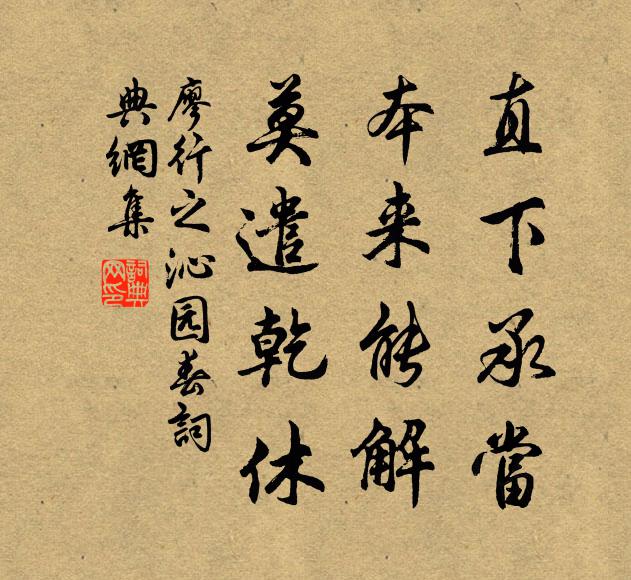 直下承當
本来能解
莫遣乾休
廖行之沁园春詞
典網集
詞典网印